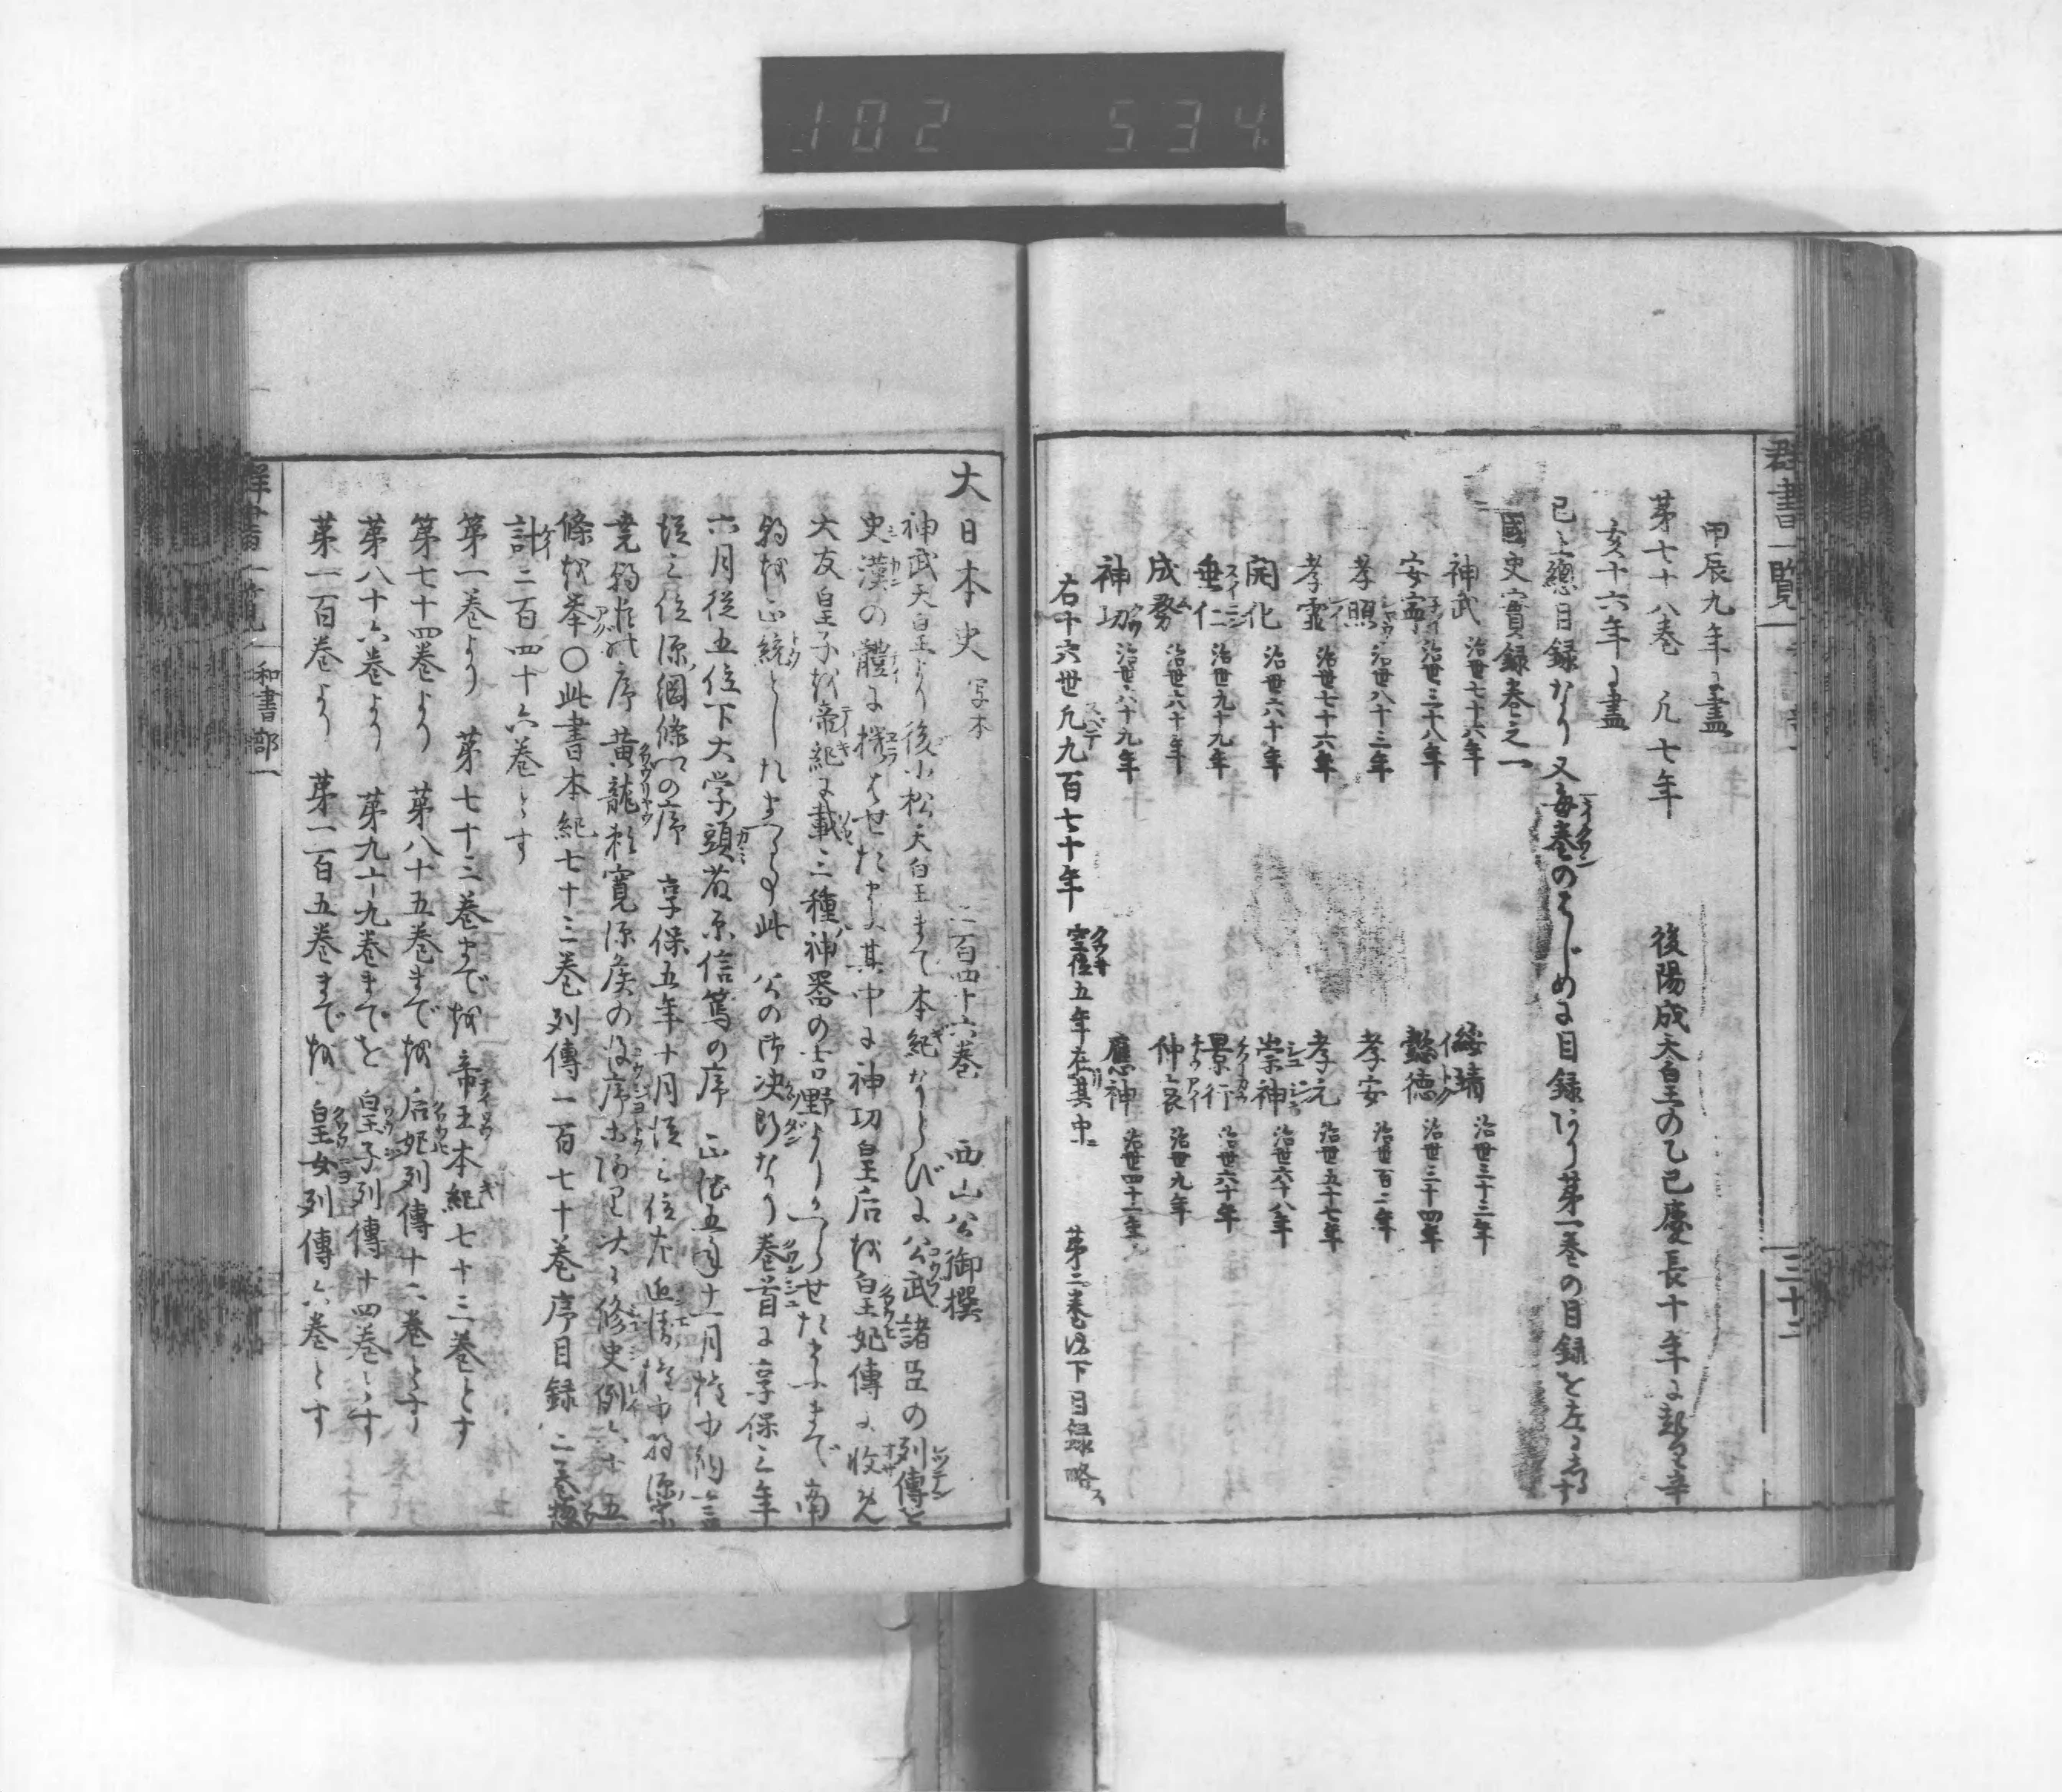 102 534
群書一覧
三十三
甲辰九年に盡
第七十八巻 凡七年 後陽成天皇の乙巳慶長十年に起り辛
亥十六年に盡
已上總目録なり又毎巻のはじめに目録あり第一巻の目録を左にしるす
國史實録巻之一
神武 治世七十六年 綏靖 治世三十三年
安寧 治世三十八年 懿徳 治世三十四年
孝照 治世八十三年 孝安 治世百二年
孝霊 治世七十六年 孝元 治世五十七年
開化 治世六十年 崇神 治世六十八年
垂仁 治世九十九年 景行 治世六十年
成務 治世六十年 仲哀 治世九年
神功 治世六十九年 應神 治世四十一年
右十六世凡九百七十年 空位五年在其中 第二巻以下目録略ス
大日本史 写本 二百四十六巻 西山公御撰
神武天皇より後小松天皇まて本紀ならびに公武諸臣の列傳を
史漢の體に擬らせたまふ其中に神功皇后を皇妃傳に收め
大友皇子を帝紀に載三種神器の吉野よりかへらせたまふまで南
朝を正統としたまへる事此 公の御决断なり巻首に享保三年
六月従五位下大学頭藤原信篤の序 正徳五年十一月権中納言
従三位源綱條の序 享保五年十月従三位左近衛権中将源宗
堯の序 黄龍 寛 の後序 修史例六十五
條を挙○此書本紀七十三巻列傳一百七十巻序目録二巻
計二百四十六巻とす
第一巻より 第七十三巻まで を 帝王本紀七十三巻とす
第七十四巻より 第八十五巻まで を 后妃列傳十二巻とす
第八十六巻より 第九十九巻まで を 皇子列傳十四巻とす
第一百巻より 第一百五巻まで を 皇女列傳六巻とす
群書一覧
和書部一